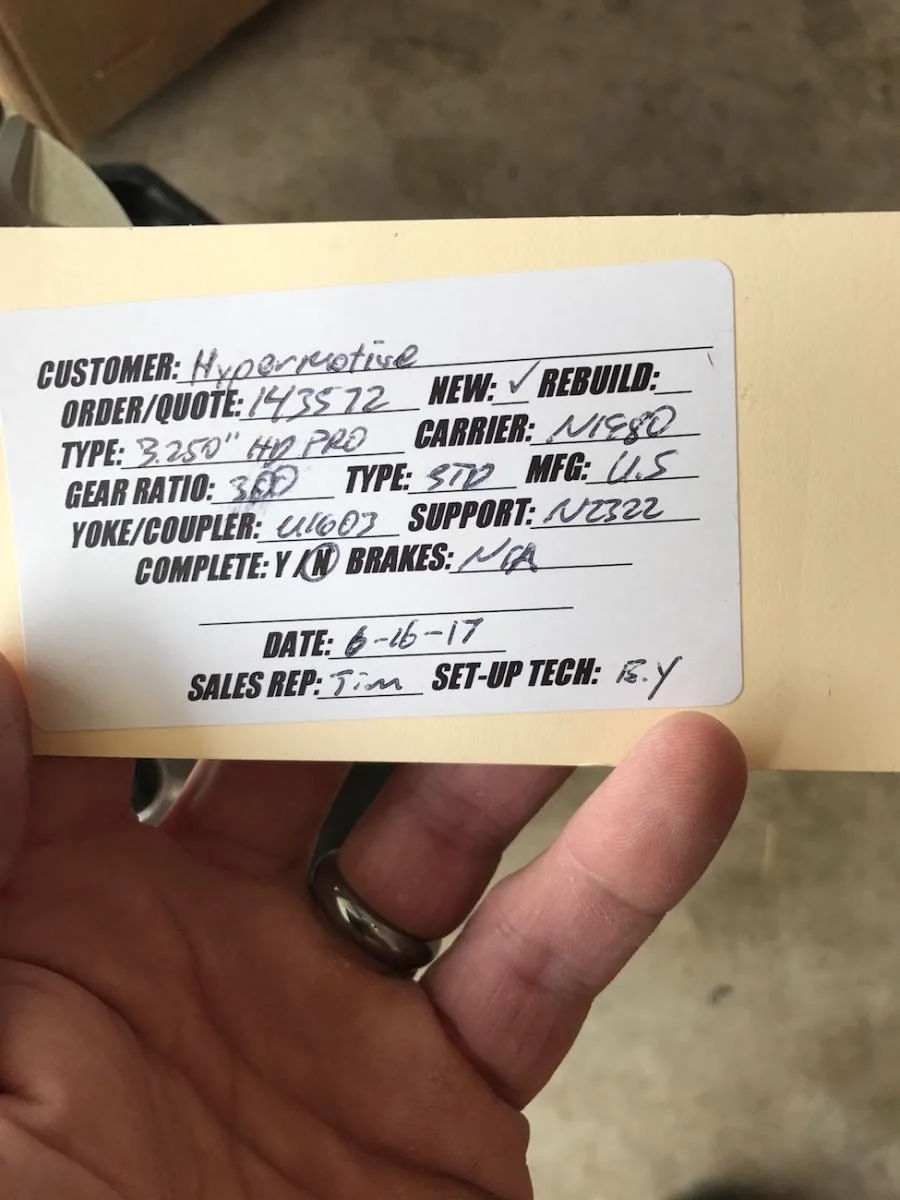 CUSTOMER: Hypermotive
ORDER/QUOTE: 143572 NEW: ✓ REBUILD:
TYPE: 3.250" HD PRO CARRIER: N1980
GEAR RATIO: TYPE: STD MFG: U.S
YOKE/COUPLER: U1603 SUPPORT: N2322
COMPLETE: Y/N BRAKES: N/A
DATE: 6-16-17
SALES REP: Tim SET-UP TECH: E.Y